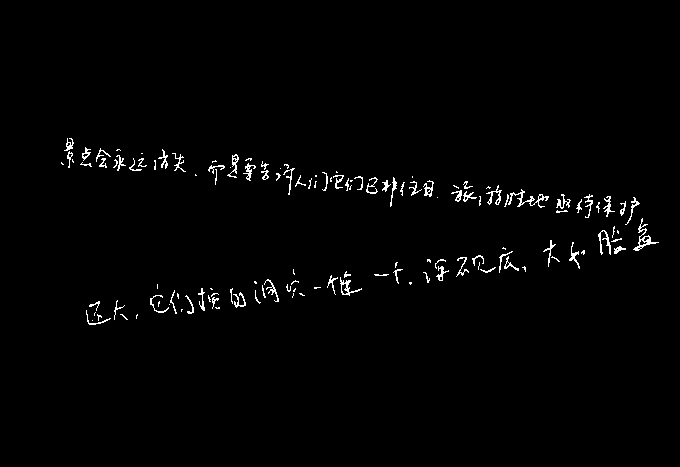 景点会永远消失、而是要告诉人们它们已非往日、旅游胜地亟待保护
还大,它们挖的洞穴一个挨一个,深不见底,大如脸盆